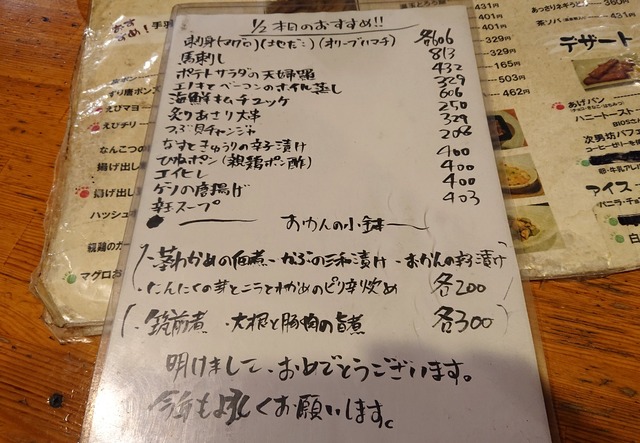 1/2 本日のおすすめ!!
刺身(マグロ)(はせだこ)(オリーブハマチ) 各606
馬刺し 813
ポテトサラダの天婦羅 432
エノキとベーコンのホイル蒸し 329
海鮮キムチユッケ 606
炙りあさり大串 250
つぶ貝チャンジャ 329
なすときゅうりの辛子漬け 203
ひねポン(親鶏ポン酢) 400
エイヒレ 400
ゲソの唐揚げ 400
辛王スープ 403
おかんの小鉢
・茎わかめの佃煮・かぶの三和漬け・おかんの辛子漬け
・にんにくの芽とニラとわかめのピリ辛炒め 各200
・筑前煮 ・大根と豚肉の旨煮 各300
明けまして、おめでとうございます。
今年も よろしくお願いします。
すり唐ポン
えびマヨ
えびチリ
なんこつの
揚げ出し
揚げ出し
ハッシュ
親鶏のガ
マグロお
431円
401円
329円
329円
165円
503円
462円
あっさりネギ
360円
茶ソバ
431円
デザート
あげパン
ハニートースト
次男坊パフ
アイス
バニラ・チョ